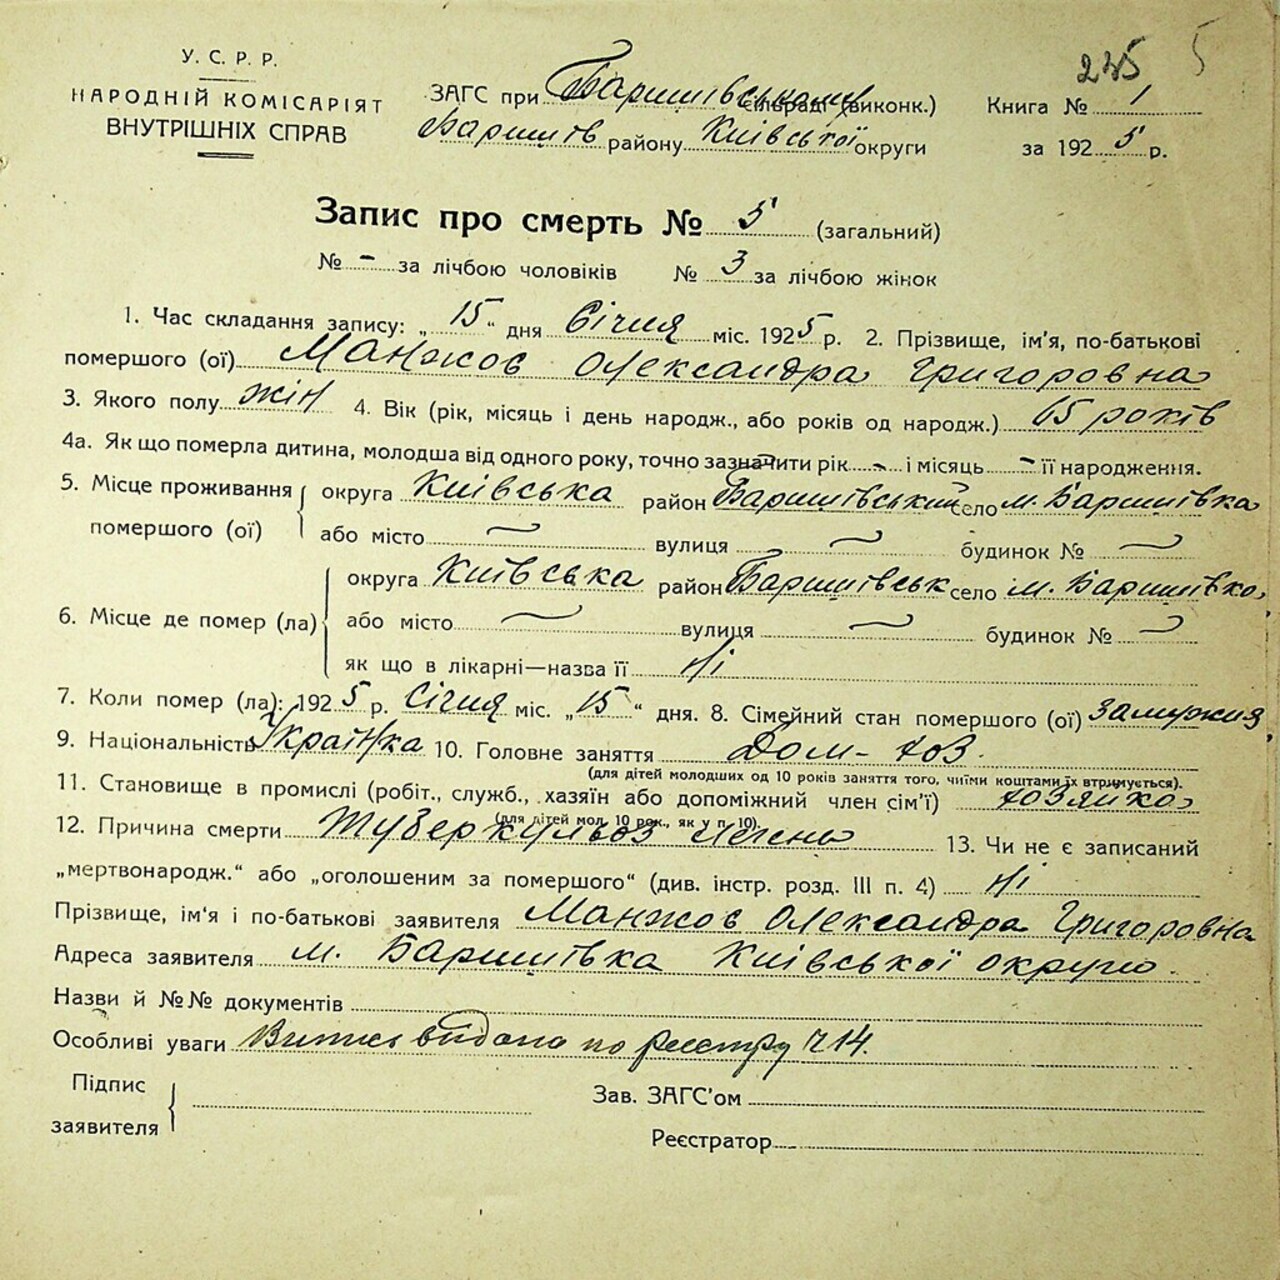 245 5
У. С. Р. Р.
НАРОДНІЙ КОМІСАРІЯТ
ВНУТРІШНІХ СПРАВ
ЗАГС при Баришівському (виконк.)
Баришів району Київської округи
Книга № 1
за 1925 р.
Запис про смерть № 5 (загальний)
№ - за лічбою чоловіків № 3 за лічбою жінок
1. Час складання запису: „15“ дня Січня міс. 1925 р. 2. Прізвище, ім'я, по-батькові
помершого (ої) Манжос Олександра Григоровна
3. Якого полу жін 4. Вік (рік, місяць і день народж., або років од народж.) 65 років
4а. Як що померла дитина, молодша від одного року, точно зазначити рік - і місяць - її народження.
5. Місце проживання помершого (ої) округа Київська район Баришівський село м. Баришівка
або місто вулиця будинок №
6. Місце де помер (ла) округа Київська район Баришівськ село м. Баришівка
або місто вулиця будинок №
як що в лікарні—назва її Ні
7. Коли помер (ла): 1925 р. Січня міс. „15“ дня. 8. Сімейний стан помершого (ої) Замужня
9. Національність Українка 10. Головне заняття Дом-хоз.
(для дітей молодших од 10 років заняття того, чиїми коштами їх втримується).
11. Становище в промислі (робіт., служб., хазяїн або допоміжний член сім'ї) хозяйка
(для дітей мол. 10 рок., як у п. 10).
12. Причина смерти Туберкульоз легень 13. Чи не є записаний
„мертвонародж.“ або „оголошеним за помершого“ (див. інстр. розд. III п. 4) Ні
Прізвище, ім'я і по-батькові заявителя Манжос Олександра Григоровна
Адреса заявителя м. Баришівка Київської округи.
Назви й №№ документів
Особливі уваги Витис видана по реєстру ч 14.
Підпис
заявителя
Зав. ЗАГС'ом
Реєстратор